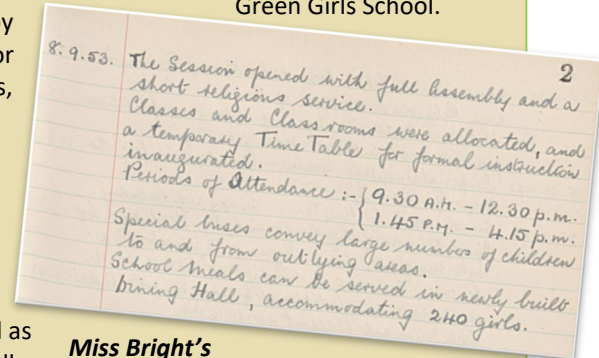 Green Girls School.
by
or
s,
2
8.9.53. The Session opened with full Assembly and a
short religious service.
Classes and Classrooms were allocated, and
a temporary Time Table for formal instruction
inaugurated.
Periods of Attendance :- { 9.30 A.M. - 12.30 p.m.
1.45 P.M. - 4.15 p.m.
Special buses convey large numbers of children
to and from outlying areas.
School meals can be served in newly built
Dining Hall, accommodating 240 girls.
d as
Miss Bright's